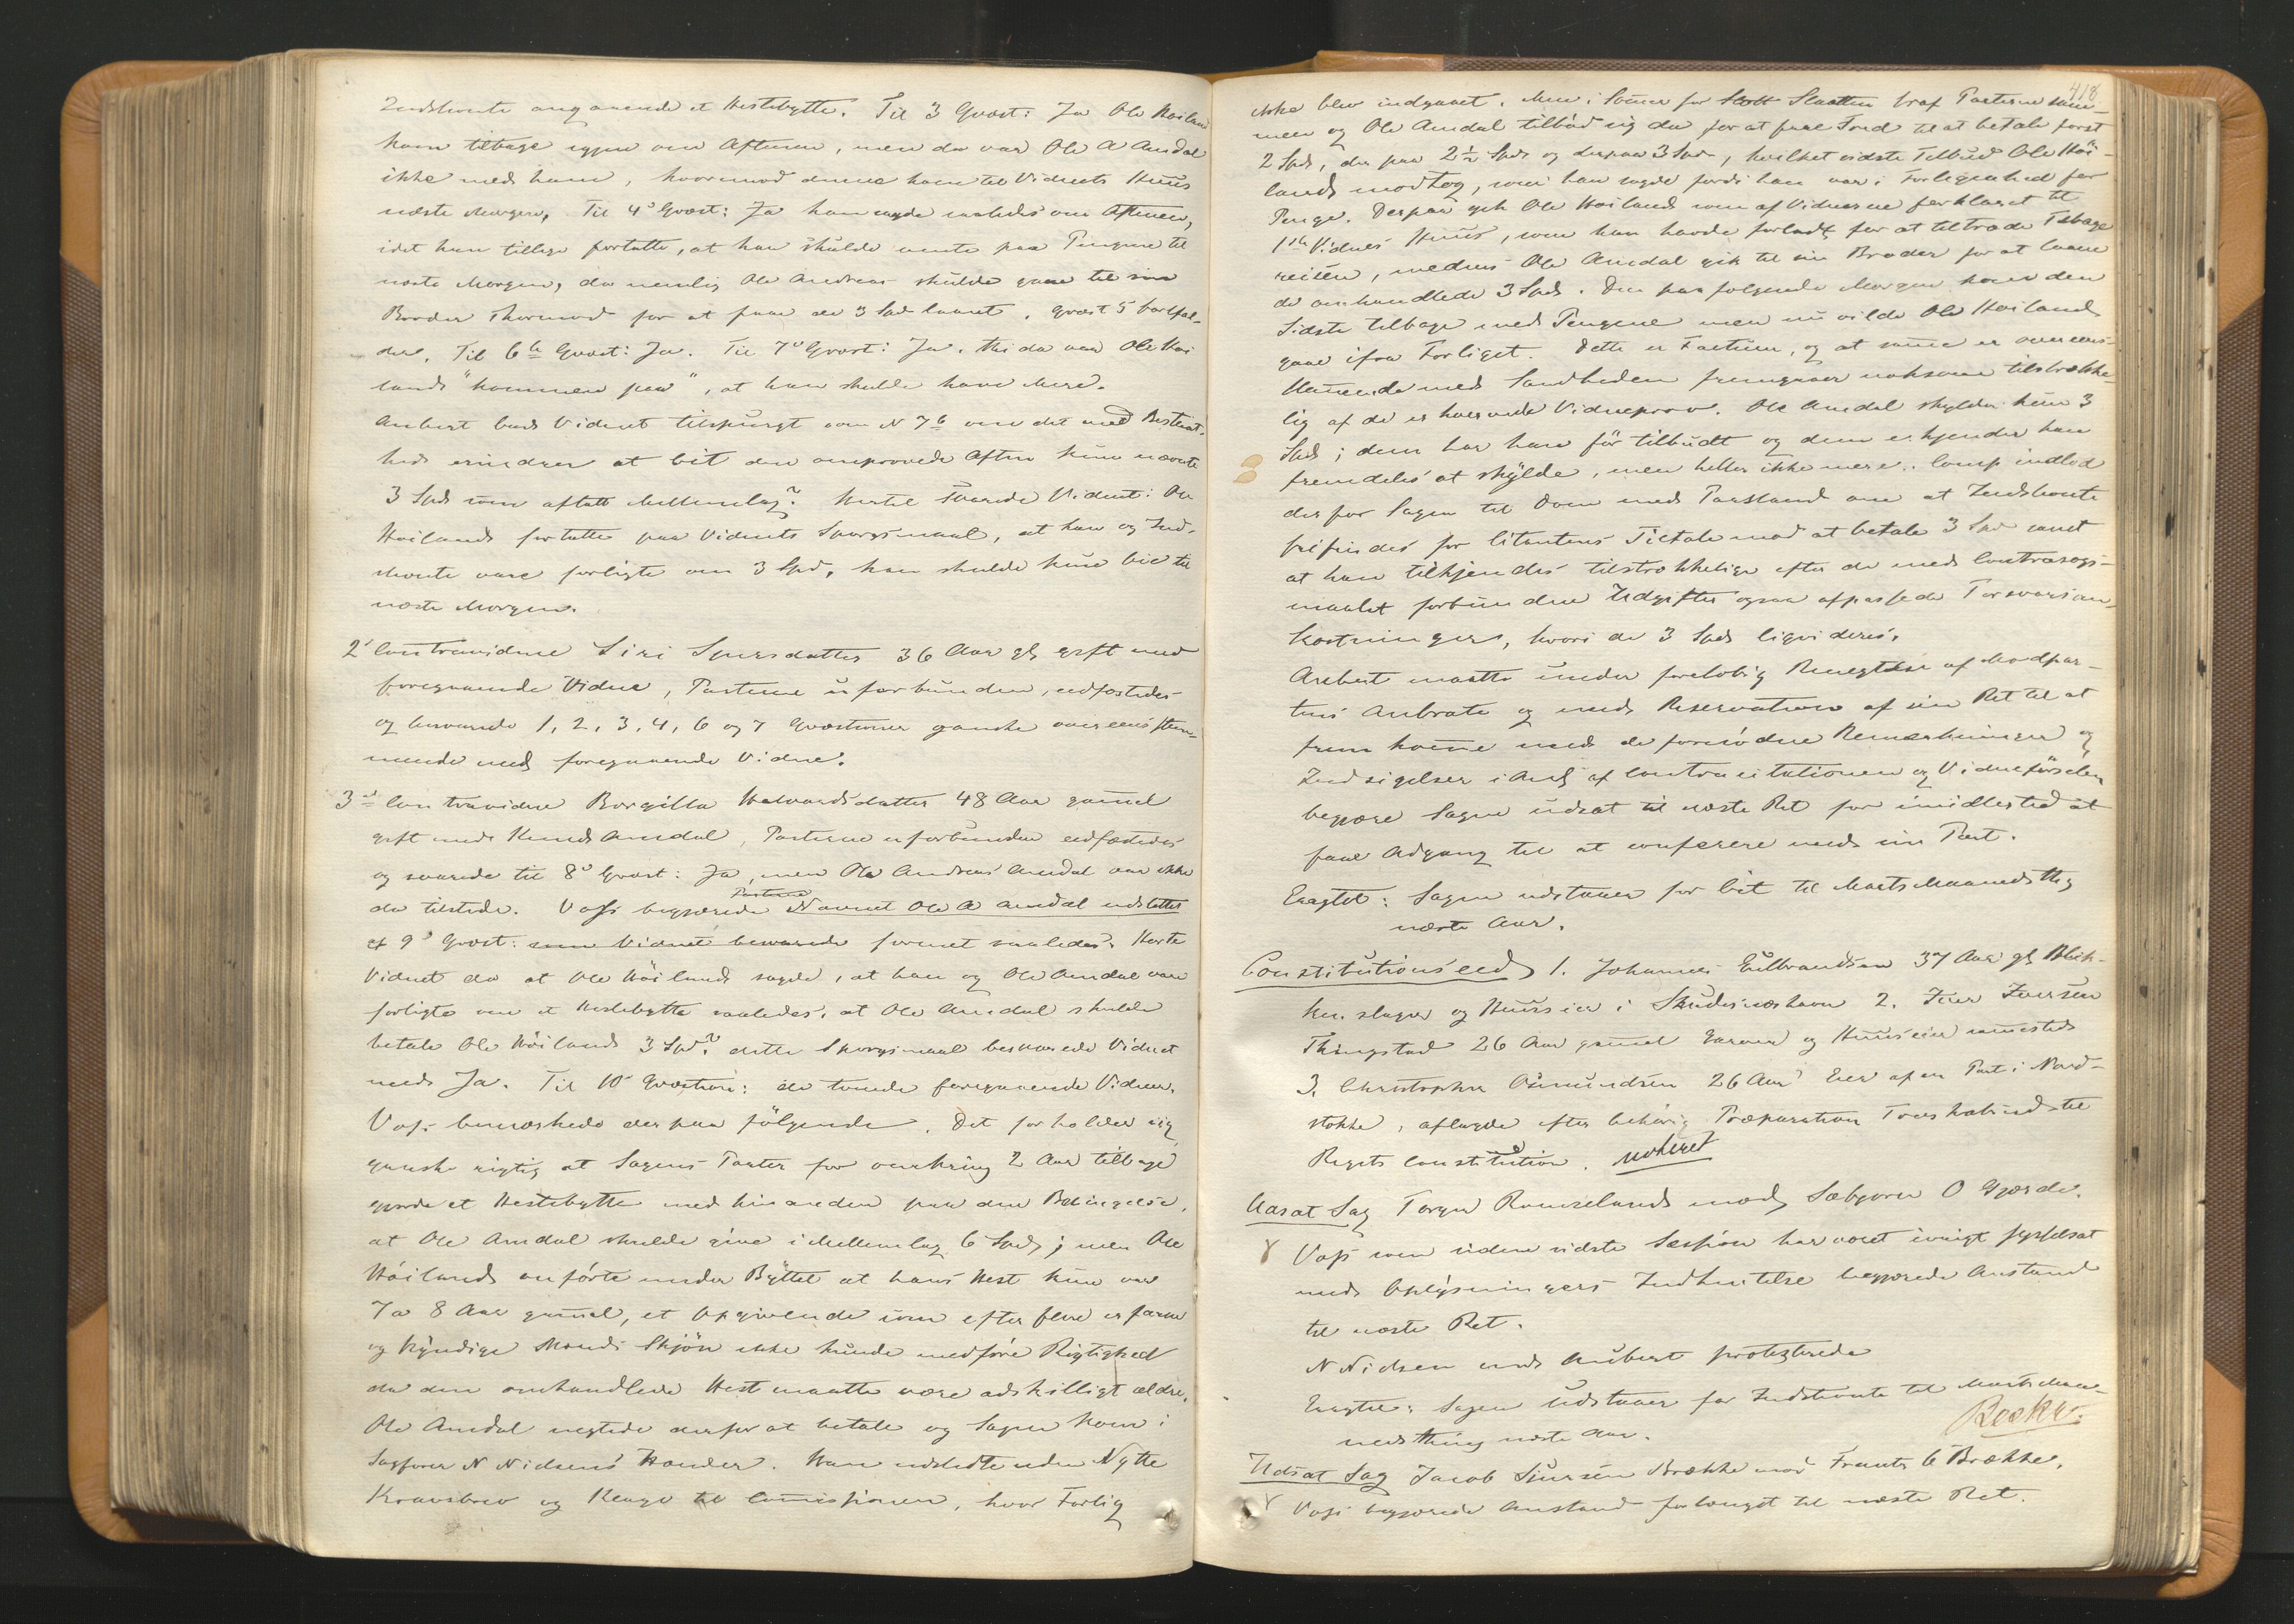 Indstevnte angaaende et Hestebytte. Til 3 Qvæst: Ja Ole Høiland
kom tilbage igjen om Aftenen, men da var Ole A Amdal
ikke med ham, hvorimod denne kom til Vidnets Huus
næste Morgen, Til 4de Qvæst: Ja han sagde saaledes om Aftenen,
idet han tillige fortalte, at han skulde vente paa Pengene til
næste Morgen, da nemlig Ole Andreas skulde gaae til sin
Broder Thormod for at faae de 3 Spd laant. Qvæst 5 bortfal-
der. Til 6te Qvæst: Ja. Til 7de Qvæst: Ja, thi da var Ole Høi
lands "kommen paa", at han skulde have Mere.
Aubert bad Vidnet tilspurgt som N 7b om det med Bestemt-
hed erindrer at Cit den omprovede Aften kun nævnte
3 Spd som aftalt Mellemlag? Hertil svarede Vidnet: Ole
Høilands fortalte paa Vidnets Spørgsmaal, at han og Ind-
stevnte vare forligte om 3 Spd, han skulde kun bie til
næste Morgen.
2det Contravidne Siri Sjursdatter 36 Aar gl gift med
foregaaende Vidne, Parterne uforbunden, eedfæstedes
og besvarede 1, 2, 3, 4, 6 og 7 Qvæstioner ganske overeensstem-
mende med foregaaende Vidne.
3die Contravidne Borgilla Halvardsdatter 48 Aar gammel
gift med Knud Amdal, Parterne uforbunden eedfæstedes
og svarede til 8de Qvæst: Ja, men Ole Andreas Amdal var ikke
da tilstede. Voss begjærede Navnet Ole A Amdal udslettet
Parterne
af 9de Qvæst: som Vidnet besvarede formet saaledes. Hørte
Vidnet da at Ole Höilands sagde, at han og Ole Amdal vare
forligte om et Hestebytte saaledes, at Ole Amdal skulde
betale Ole Höilands 3 Spd? dette Spørgsmaal besvarede Vidnet
med Ja. Til 10 Qvæstion: de tvende foregaaende Vidner.
Voss bemærkede derpaa fölgende. Det forholder sig
ganske rigtig at Sagens Parter for omkring 2 Aar tilbage
gjorde et Hestebytte med hinanden paa den Betingelse,
at Ole Amdal skulde give i Mellemlag 6 Spd; men Ole
Höilands anförte under Byttet at hans Hest kun var
7a 8 Aar gammel, et Opgivende som efter flere erfarne
og kyndige Mænds Skjön ikke kunde medföre Rigtighed
da den omhandlede Hest maatte være adskilligt ældre.
Ole Amdal negtede derfor at betale og Sagen kom i
Sagfører N Nielsens Hænder. Han udstedte uden Nytte
Kravsbrev og Klage til Commissionen, hvor Forlig
418
ikke blev indgaaet. Men i Sommer før Slaatten traf Parterne sam-
men og Ole Amdal tilböd sig da for at faae Fred til at betale först
2 Spd, der paa 2½ Spd og derpaa 3 Spd, hvilket sidste Tilbud Ole Höi-
lands modtog, som han sagde fordi han var i Forlegenhed for
Penge. Derpaa gik Ole Höilands som af Vidnerne forklaret til
1ste Vidnes Huus, som han havde forladt for at tiltræde Tilbage
reisen, medens Ole Amdal gik til sin Broder for at laane
de omhandlede 3 Spd. Den paafølgende Morgen kom den
Sidste tilbage med Pengene men nu vilde Ole Høilands
gaae ifra Forliget. Dette er Factum, og at samme er overeens-
stemmende med Sandheden fremgaaer noksom tilstrække-
lig af de erhvervede Vidneprov. Ole Amdal skylder kun 3
Spd; dem har han för tilbudt og dem erkjender han
fremdeles at skylde, men heller ikke mere. Comp indlod
derfor Sagen til Dom med Paastand om at Indstevnte
frifindes for Citantens Tiltale mod at betale 3 Spd samt
at han tilkjendes tilstrækkelige efter de med Contrasögs-
maalet forbundne Udgifter ogsaa afpassede Forsvarsom-
kostninger, hvori de 3 Spd liqvideres.
Aubert maatte under foreløbig Benegtelse af Modpar-
tens Anbragte og med Reservation af sin Ret til at
fremkomme med de fornödne Bemærkninger og
Indsigelser i Anl af Contracitationen og Vidneförselen
begjære Sagen udsat til næste Ret for imidlertid at
faae Adgang til at conferere med sin Part.
Eragtet: Sagen udstaaer for Cit til Marts Maaneds Thing
næste Aar.
Constitutionseed 1. Johannes Gulbrandsen 37 Aar gl Blik-
kenslager og Huuseier i Skudesnæshavn 2. Iver Iversen
Thingstad 26 Aar gammel Garver og Huuseier sammesteds
3. Christopher Osmundsen 26 Aar Eier af en Part i Nord-
stokke, aflagde efter behörig Præparation Troskabseed til
Rigets Constitution. noteret
Udsat Sag Torger Ramslands mod Sæbjørn O Gjerde.
Voss som siden sidste Session har været ivrigt sysselsat
med Oplysningers Indhentelse begjærede Anstand
til næste Ret.
N Nielsen ved Aubert protesterede
Eragtet: Sagen udstaaer for Indstevnte til Marts Maa-
nedsthing næste Aar.
Udsat Sag Jacob Sjursen Brække mod Frants C Brække.
Voss begjærede Anstand forlænget til næste Ret.